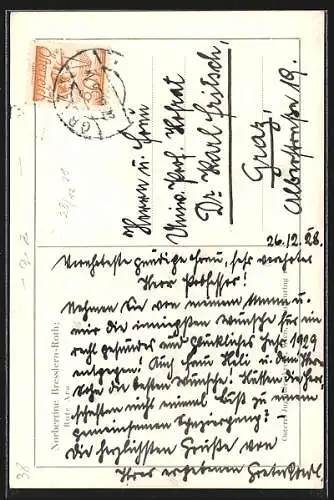 Herrn u. Frau
Univ. Prof. Hofrat
Dr. Karl Fritsch,
Graz,
Alberstraße 19.
26.12.28.
Verehrteste gnädige Frau, sehr verehrter
Herr Professor!
Nehmen Sie von meinem Manne u.
mir die innigsten Wünsche für ein
recht gesundes und glückliches Jahr 1929
entgegen! Auch Frau Heli u. dem Herrn
die besten Wünsche! Hätten die Herr-
schaften nicht einmal Lust zu einem
gemeinsamen Spaziergang?
Die herzlichsten Grüße von
Ihrer ergebenen
Norbertine Bresslern-Roth:
Rote Ara